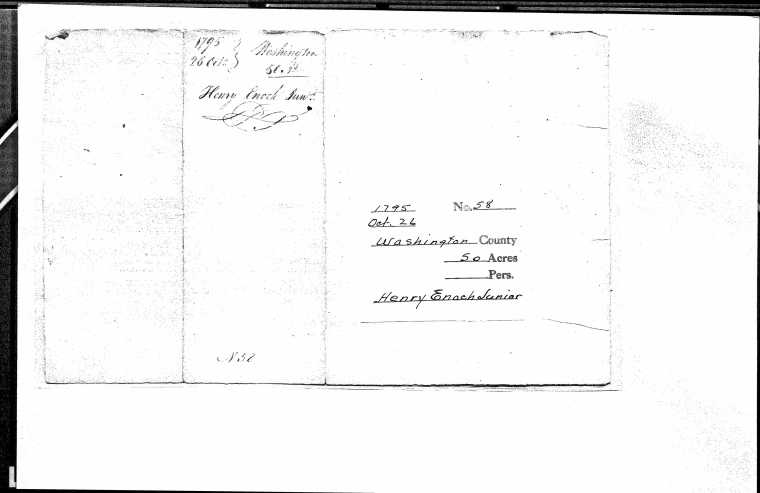 1795
Washington
26 Oct.
50. a.
Henry Enoch Junr.
N 58
1795 No. 58
Oct. 26
Washington County
50 Acres
Pers.
Henry Enoch Junior